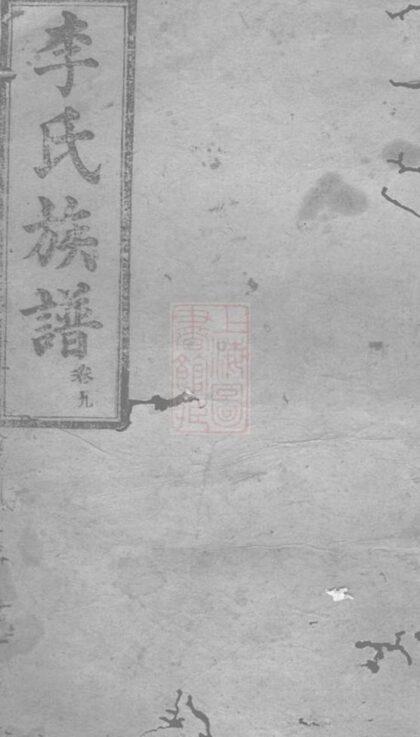 李氏族譜
卷九
上海圖
書館藏